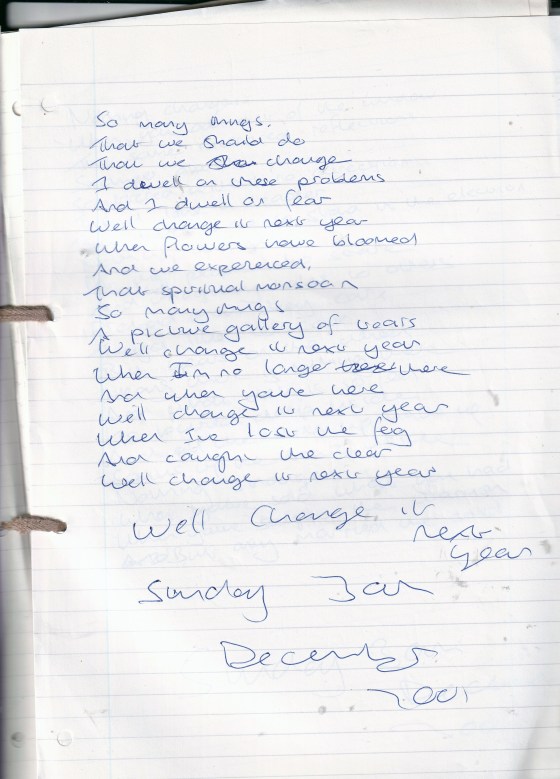 So many things.
That we should do
That we change
I dwell on these problems
And I dwell on fear
Well change it next year
When flowers have bloomed
And we experienced,
That spiritual monsoon
So many things
A picture gallery of
Well change it next year
When Im no longer here
And when youre here
Well change it next year
When Ive lost the fog
And caught the clear
Well change it next year
Well Change it
next
year
Sunday 3am
December
2001